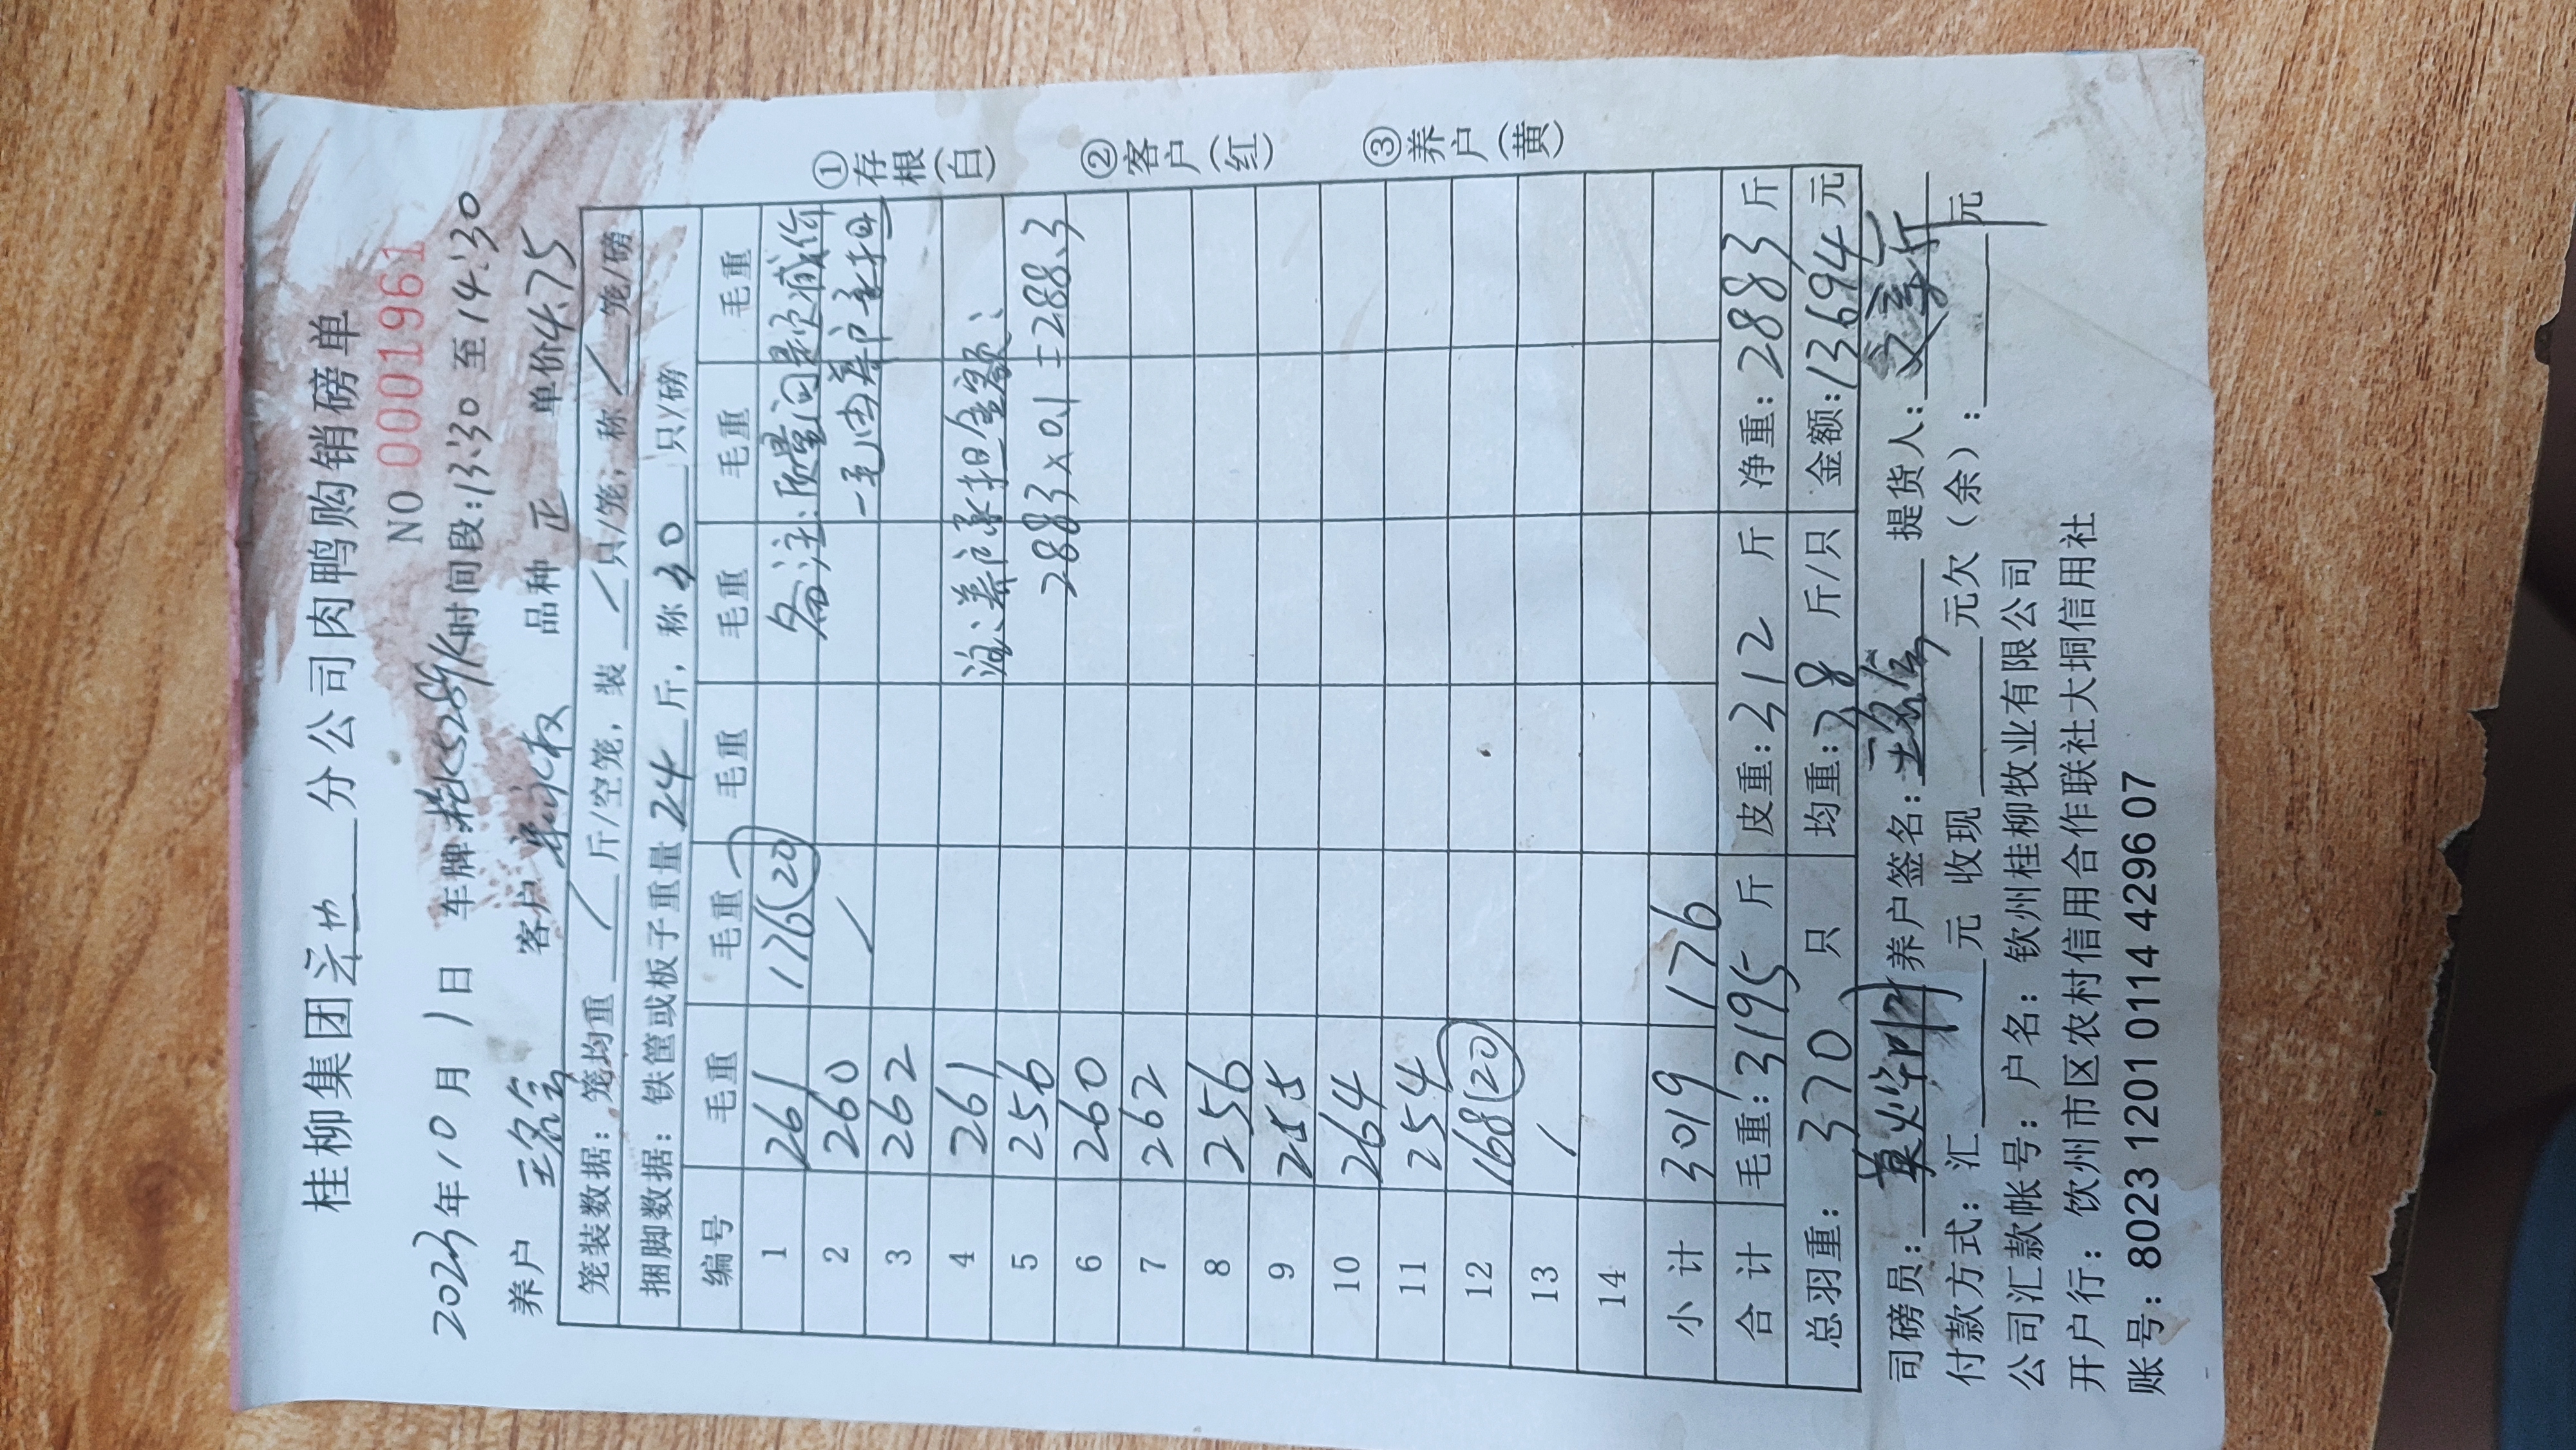 桂柳集团 分公司肉鸭购销磅单
NO 0001961
2023年10月1日 车牌: 时间段:13:30至14:30
养户 客户 品种 正 单价4.75
笼装数据：笼均重 / 斤/空笼，装 / 只/笼；称 / 笼/磅
捆脚数据：铁筐或板子重量 24 斤，称 30 只/磅
编号 毛重 毛重 毛重 毛重 毛重 毛重
1 261 176(20) 备注:质量问题减价
2 260 / 一毛由养户承担
3 262
4 261 注:养户承担金额:
5 256 2883×0.1=288.3
6 260
7 262
8 256
9 255
10 264
11 254
12 168(20)
13 /
14
小计 3019 176
合计 毛重:3195斤 皮重:312斤 净重:2883斤
总羽重: 370 只 均重:7.8 斤/只 金额:13694元
司磅员: 养户签名: 提货人:
付款方式：汇 元 收现 元欠（余）: 元
公司汇款帐号：户名：钦州桂柳牧业有限公司
开户行：饮州市区农村信用合作联社大垌信用社
账号：8023 1201 0114 4296 07
①存根(白) ②客户(红) ③养户(黄)